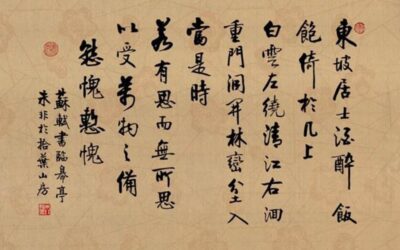 東坡居士酒醉飯
飽倚於几上
白雲左繞清江右洄
重門洞開林巒坌入
當是時
若有思而無所思
以受萬物之備
慙愧慙愧
蘇軾書臨皋亭
朱非於拾葉山房